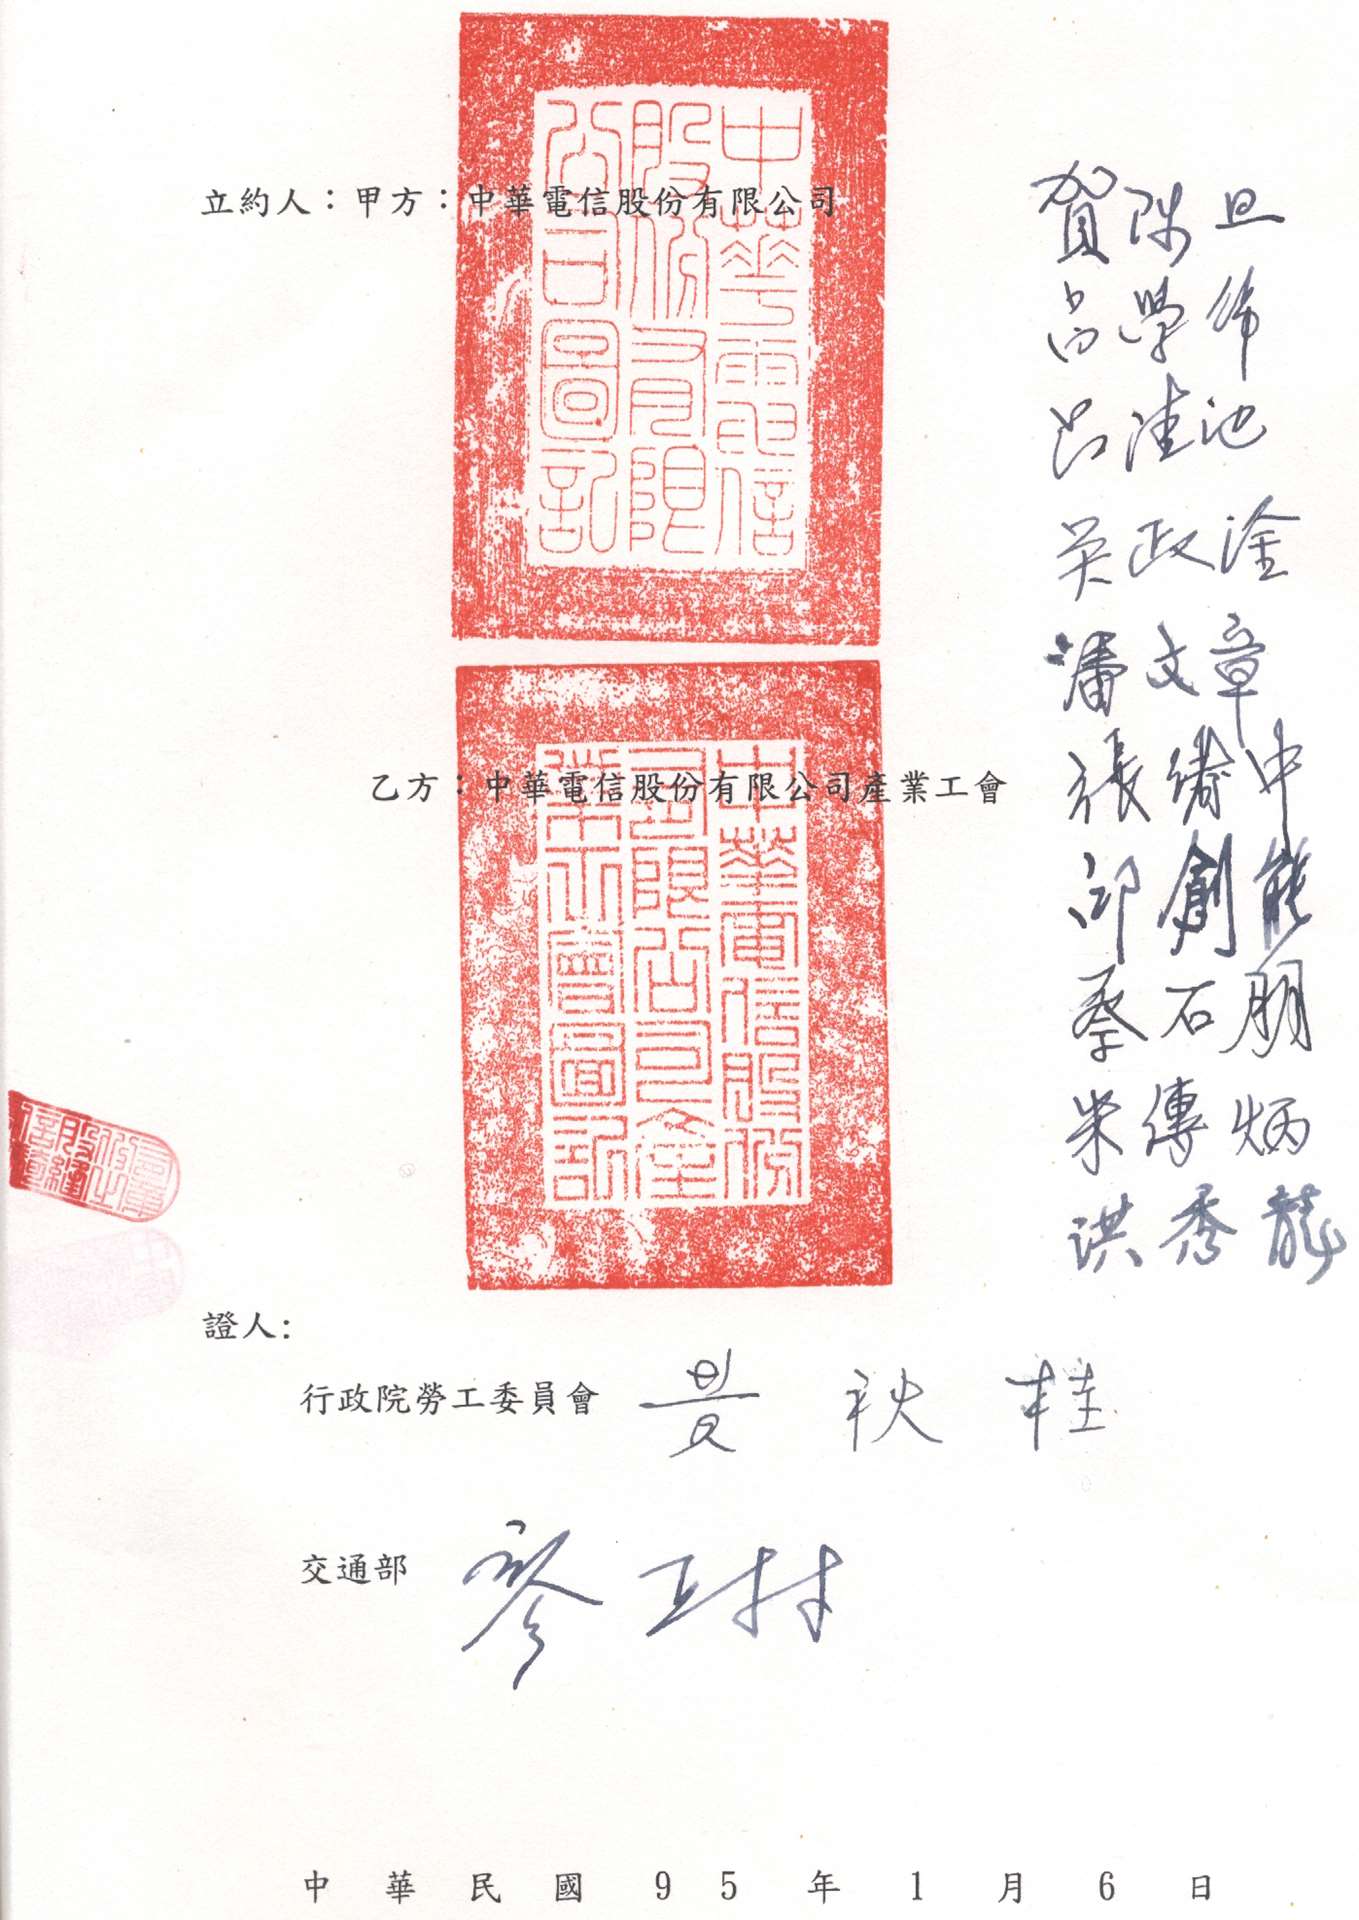 立約人：甲方：中華電信股份有限公司
中華電信
股份有限
公司圖記
賀陳旦
呂學錦
呂清池
吳政塗
潘文章
張緒中
邱創能
蔡石朋
朱傳炳
洪秀龍
乙方：中華電信股份有限公司產業工會
中華電信股份
有限公司產
業工會圖記
證人:
行政院勞工委員會 黃秋桂
交通部
中華民國95年1月6日